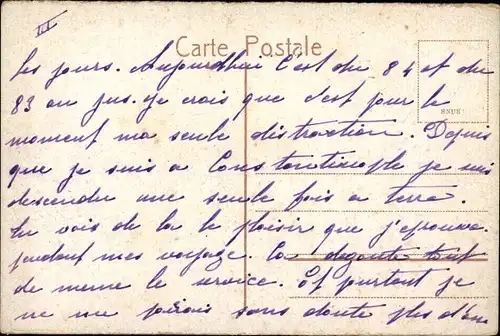 III
Carte Postale
les jours. Aujourdhui c'est du 84 et du
83 au jus. Je crois que c'est pour le
moment ma seule distraction. Depuis
que je suis a Constantinople je suis
descendu une seule fois a terre.
tu vois de la le plaisir que j'eprouve
pendant mes voyage. Ca degoute tout
de meme le service. Et pourtant je
ne me sans doute plus d'en